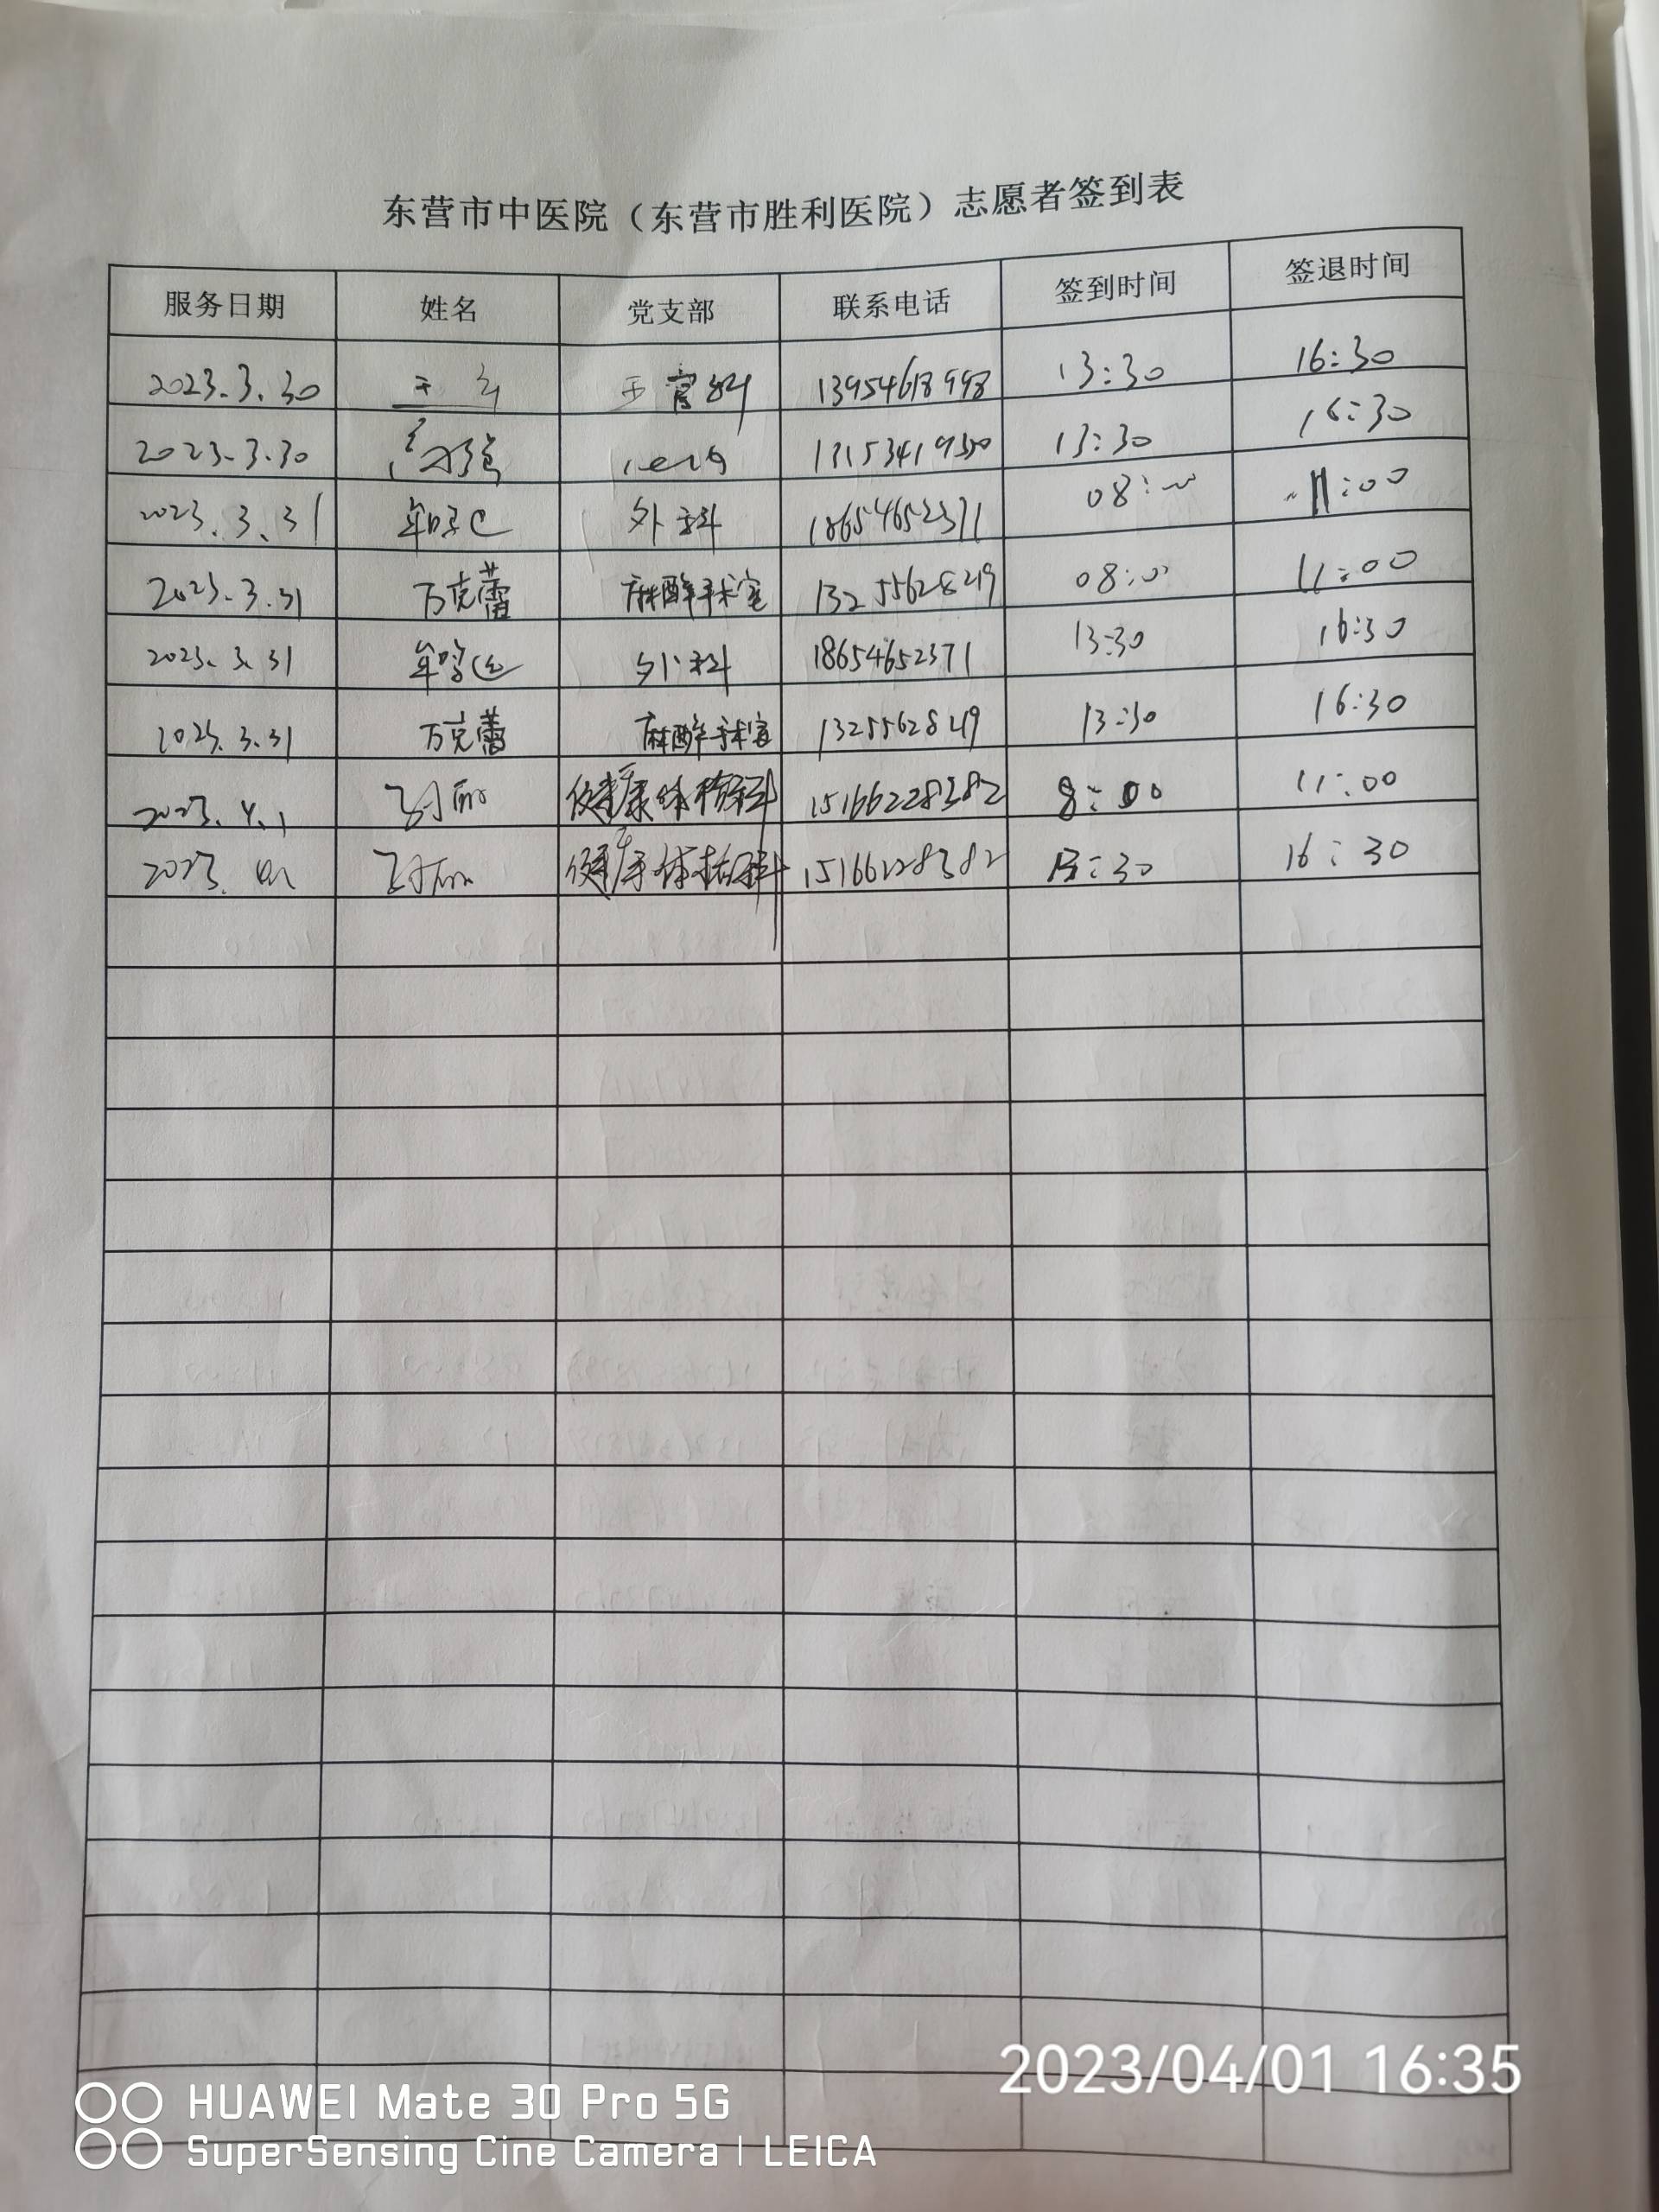 东营市中医院（东营市胜利医院）志愿者签到表
服务日期 姓名 党支部 联系电话 签到时间 签退时间
2023.3.30 13954618998 13:30 16:30
2023.3.30 13:30 16:30
2023.3.31 外科 18654652371 08:00 11:00
2023.3.31 万克蕾 麻醉手术室 13255628219 08:00 11:00
2023.3.31 外科 18654652371 13:30 16:30
2023.3.31 万克蕾 麻醉手术室 13:30 16:30
2023.4.1 健康体检科 15166228382 8:00 11:00
2023.4.1 健康体检科 15166228382 13:30 16:30
2023/04/01 16:35
HUAWEI Mate 30 Pro 5G
SuperSensing Cine Camera | LEICA